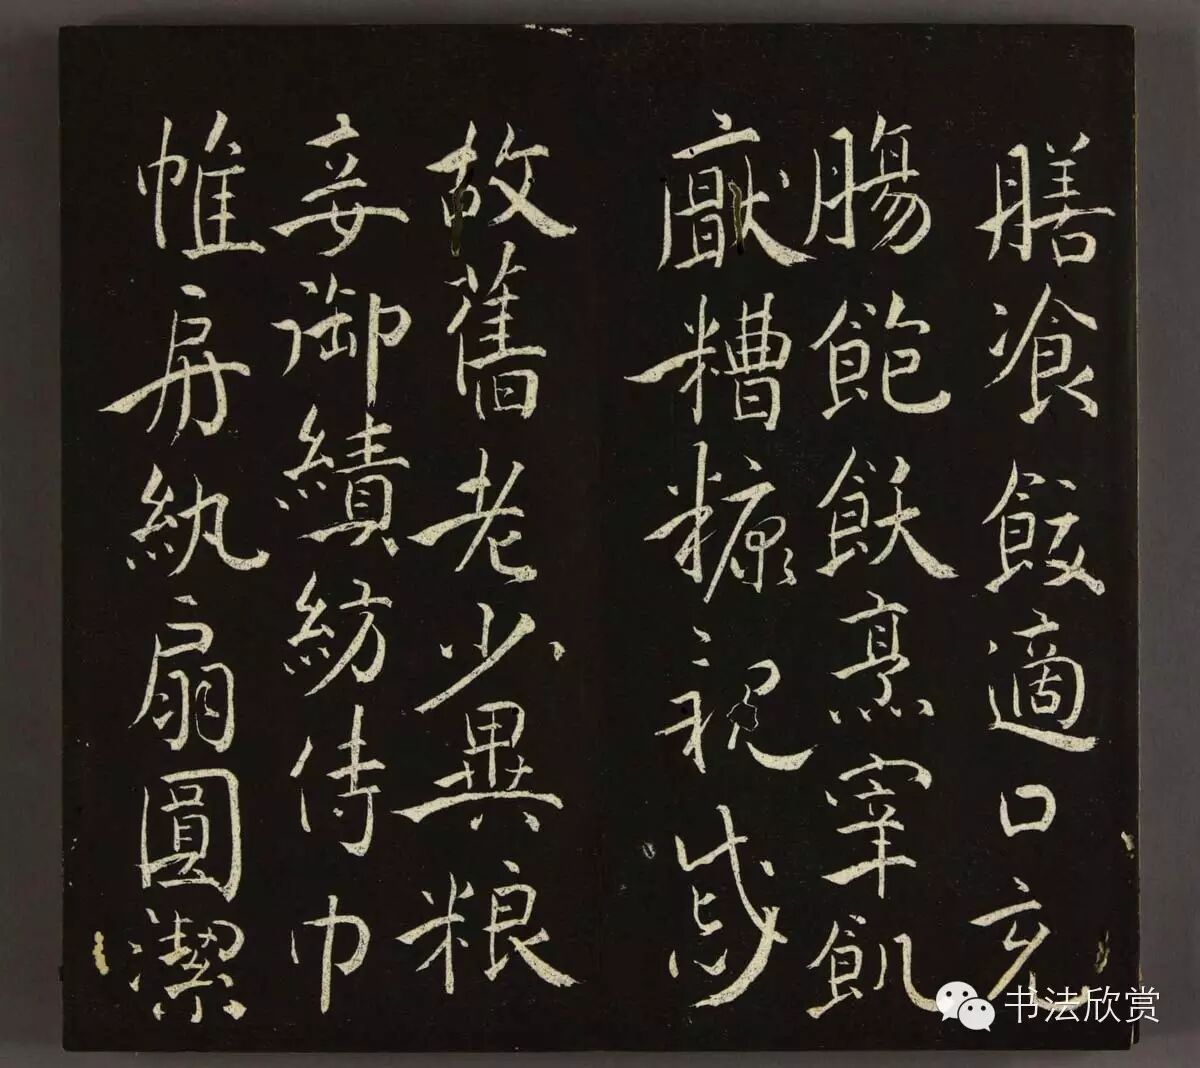 膳飡飯適口充
腸飽飫烹宰飢
厭糟糠親戚
故舊老少異粮
妾御績紡侍巾
帷房紈扇圓潔
书法欣赏